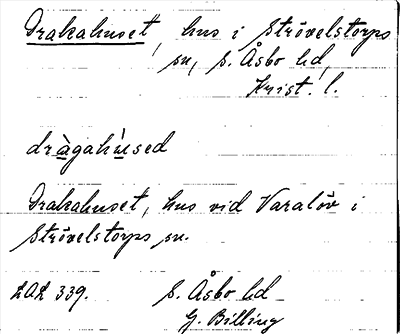 Drakahuset, hus i Strövelstorps
sn, S. Åsbo hd,
Krist. l.
dràgahùsed
Drakahuset, hus vid Varalöv i
Strövelstorps sn.
LAL 339. S. Åsbo hd
G. Billing